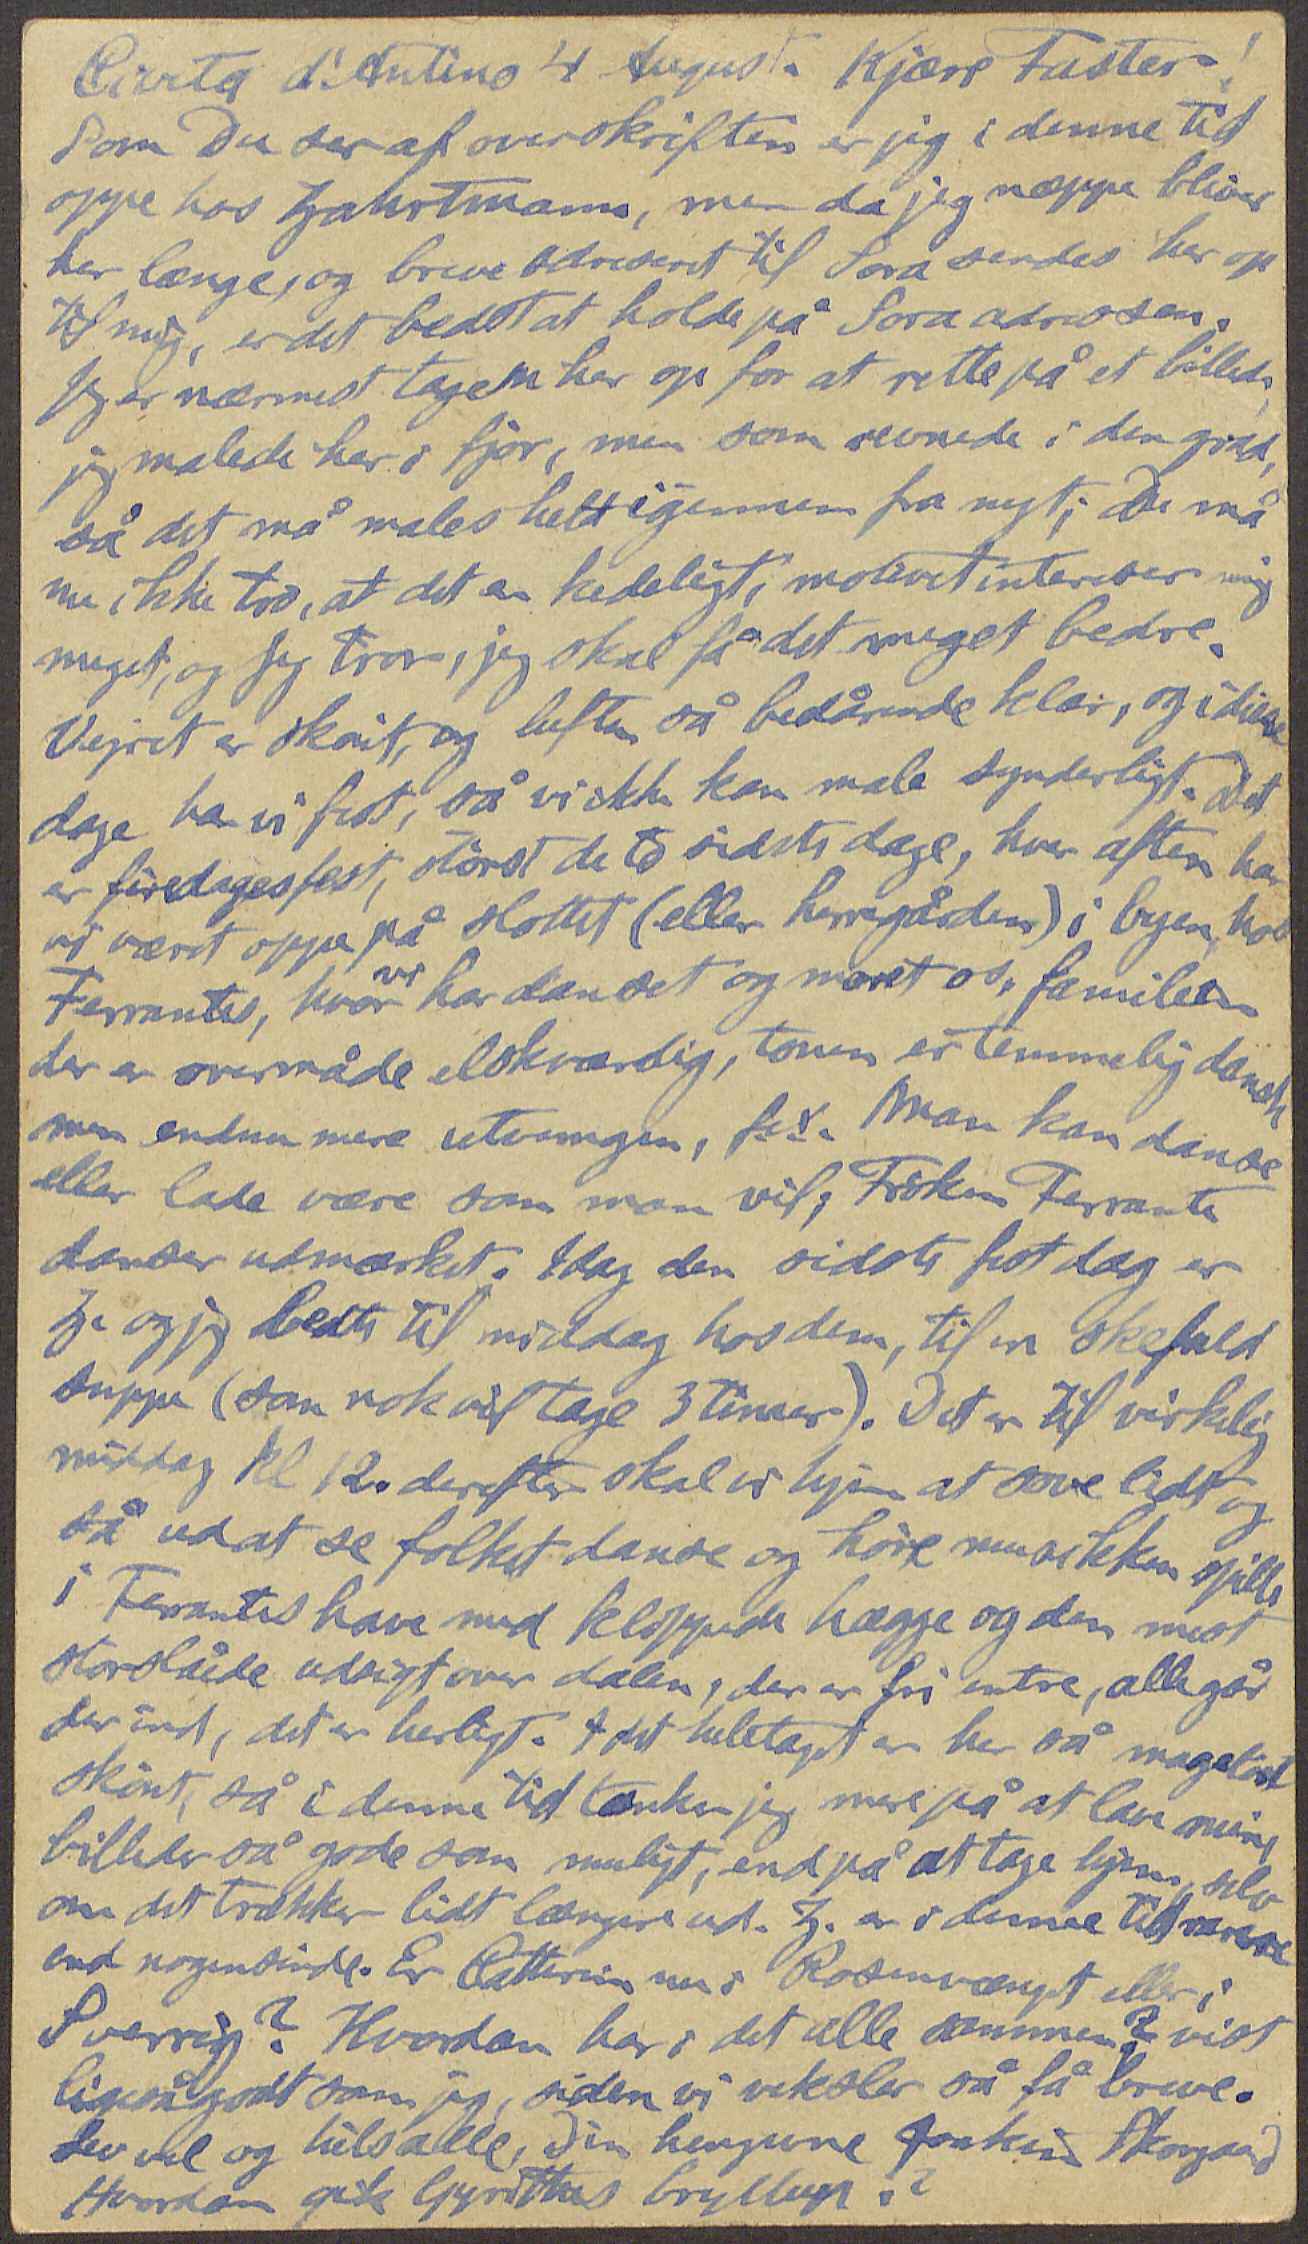 Civita d'Antino 4 August. Kjære Faster!
Som Du ser af overskriften er jeg i denne tid
oppe hos Zahrtmann, men da jeg næppe bliver
her længe, og breve adreseret til Sora sendes her op
til mig, er det bedst at holde på Sora adressen.
Jeg er nærmest tagen her op for at rette på et billede,
jeg malede her i fjor, men som revnede i den grad,
så det må males helt igennem fra nyt; Du må
nu ikke tro, at det er kedeligt, motivet intereserer mig
meget, og jeg tror, jeg skal få det meget bedre.
Vejret er skönt, og luften så bedårende klar, og i disse
dage har vi fest, så vi ikke kan male synderligt. Det
er firedagesfest, störst de to sidste dage, hver aften har
vi været oppe på slottet (eller herregården) i byen, hos
Ferrantes, hvor vi har danset og moret os, familien
der er overmåde elskværdig, tonen er temmelig dansk
men endnu mere utvungen, f.x. Man kan danse
eller lade være som man vil; Fröken Ferrante
danser udmærket. Idag den sidste festdag er
Z. og jeg bedte til middag hos dem, til en skefuld
suppe (som nok vil tage 3 timer). Det er til virkelig
middag kl 12. derefter skal vi hjem at sove lidt og
så ud at se folket danse og höre musikken spille
i Ferrantes have med kloppede hægge og den mest
storslåede udsigt over dalen, der er fri entre, alle går
der ind, det er herligt. I det heletaget er her så mageløst
skönt, så i denne tid tænker jeg mere på at lave mine
billeder så gode som muligt, end på at tage hjem, selv
om det trækker lidt længere ud. Z. er i denne tid rarere
end nogensinde. Er Catterin nu i Rosenvænget eller i
Sverrig? Hvordan har i det alle sammen? vist
ligeså godt som jeg, siden vi veksler så få breve.
Lev vel og hils alle, Din hengivne Joakim Skovgaard
Hvordan gik bryllup?